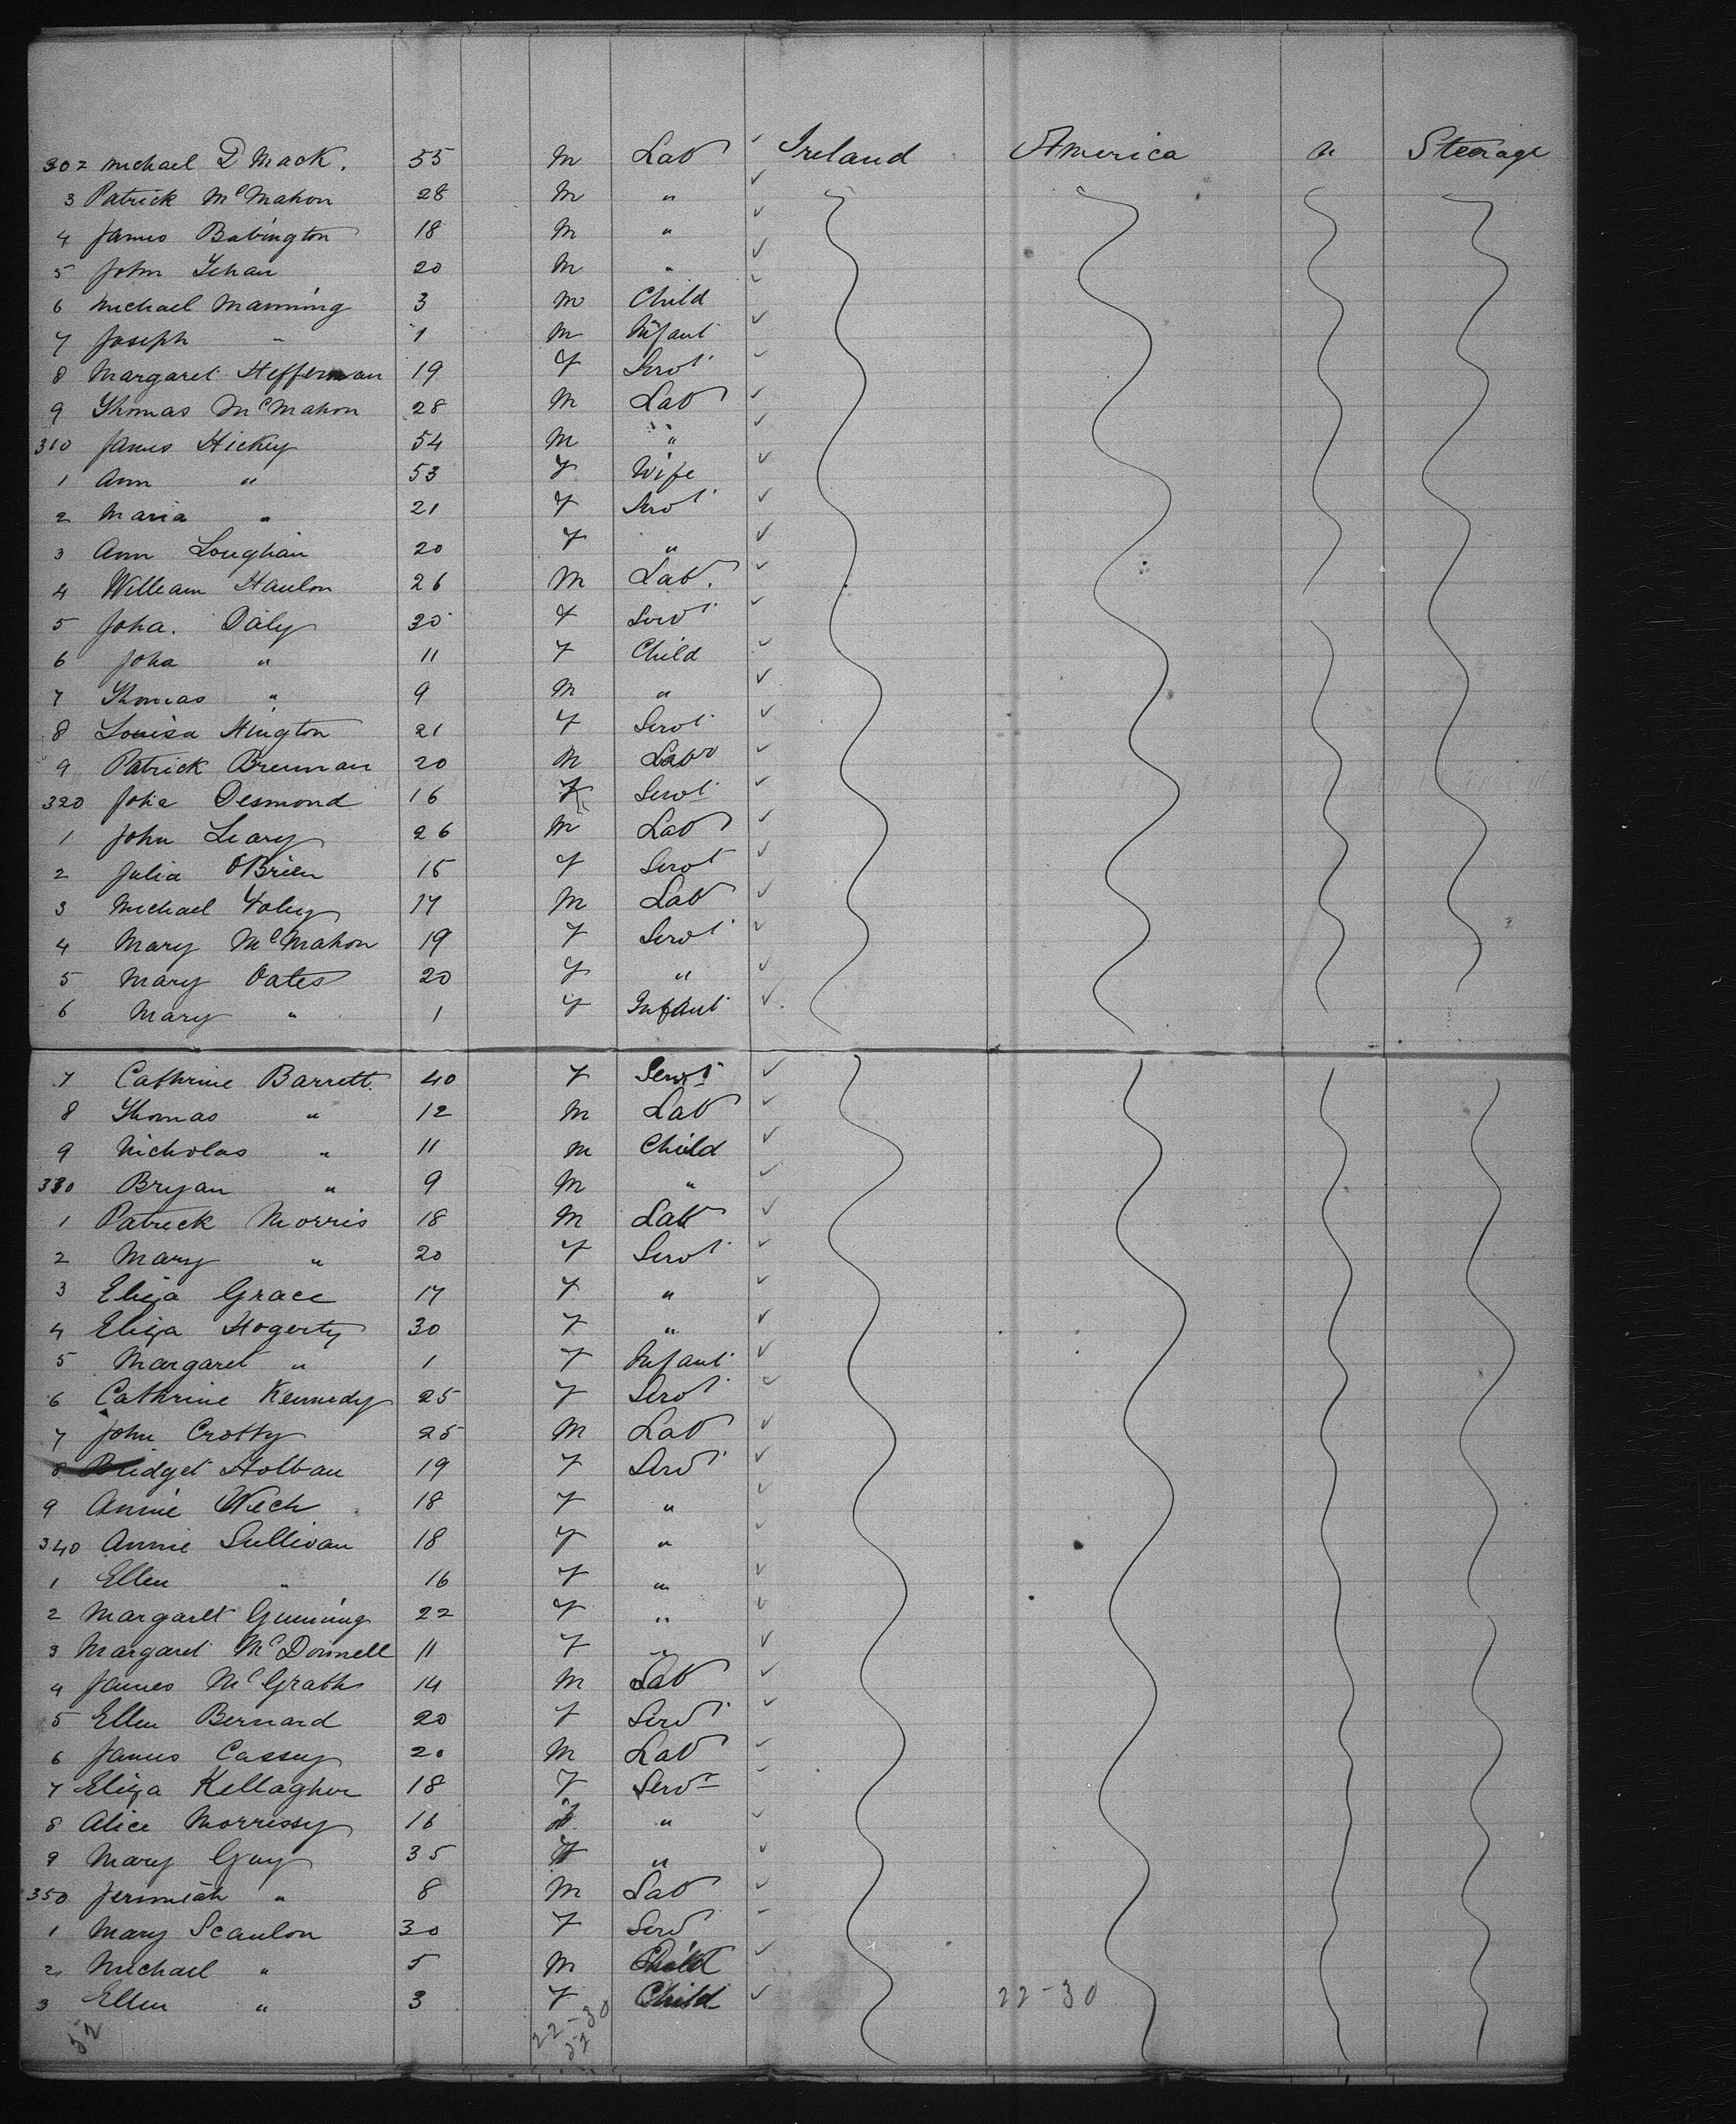 302 Michael D Mack. 55 M Lab ✓ Ireland America u Steerage
3 Patrick McMahon 28 M " ✓
4 James Babington 18 M " ✓
5 John 20 M " ✓
6 Michael Manning 3 M Child ✓
7 Joseph " 1 M Infant ✓
8 Margaret Heffernan 19 F Servt ✓
9 Thomas McMahon 28 M Lab ✓
310 James Hickey 54 M " ✓
1 Ann " 53 F Wife ✓
2 Maria " 21 F Servt ✓
3 Ann Loughlan 20 F " ✓
4 William Hanlon 26 M Lab. ✓
5 Joha. Daly 30 F Servt ✓
6 Joha " 11 F Child ✓
7 Thomas " 9 M " ✓
8 Louisa Hington 21 F Servt ✓
9 Patrick Brennan 20 M Labr ✓
320 Joha Desmond 16 F Servt ✓
1 John Leary 26 M Lab ✓
2 Julia OBrien 15 F Servt ✓
3 Michael Foley 17 M Lab ✓
4 Mary McMahon 19 F Servt ✓
5 Mary Oates 20 F " ✓
6 Mary " 1 F Infant ✓
7 Cathrine Barrett. 40 F Servt ✓
8 Thomas " 12 M Lab ✓
9 Nicholas " 11 M Child ✓
330 Bryan " 9 M " ✓
1 Patrick Morris 18 M Lab ✓
2 Mary " 20 F Servt ✓
3 Eliza Grace 17 F " ✓
4 Eliza Hogerty 30 F " ✓
5 Margaret " 1 F Infant ✓
6 Cathrine Kennedy 25 F Servt ✓
7 John Crotty 25 M Lab ✓
8 Bridget Holban 19 F Servt ✓
9 Annie 18 F " ✓
340 Annie Sullivan 18 F " ✓
1 Ellen " 16 F " ✓
2 Margaret Gunning 22 F " ✓
3 Margaret McDonnell 11 F " ✓
4 James McGrath 14 M Lab ✓
5 Ellen Bernard 20 F Servt ✓
6 James Cassey 20 M Lab ✓
7 Eliza Kellagher 18 F Servt ✓
8 Alice Morrissy 16 F " ✓
9 Mary Guy 35 F " ✓
350 Jermiah " 8 M Lab ✓
1 Mary Scanlon 30 F Servt ✓
2 Michael " 5 M Child ✓
3 Ellen " 3 F Child ✓ 22-30
52 22-30
52